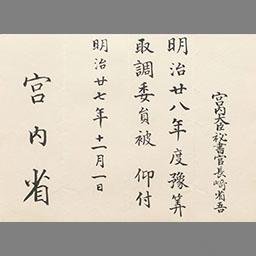 宮内大臣秘書官長崎省吾
明治廿八年度豫算
取調委員被　仰付
明治廿七年十一月一日
宮内省